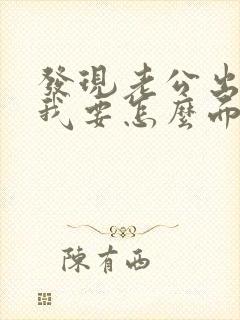 發現老公出
我要怎麼而
陳有西